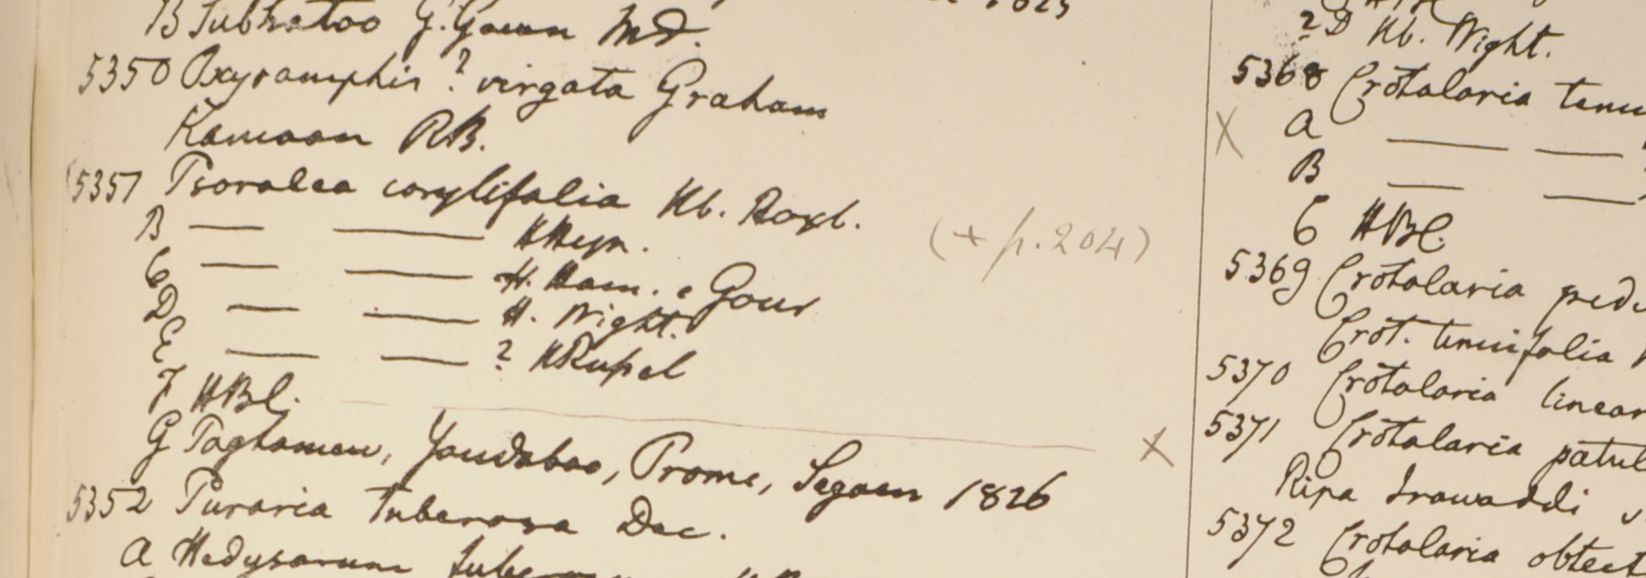 B Sukhatoo G. Govan MD.
5350 Oxyramphis? virgata Graham
Kamaon RB.
5351 Psoralea corylifolia Hb. Roxb.
B — — HHeyn.
(+ p. 204)
C — — H. Ham. e Gour
D — — H. Wight.
E — — ? HRupel
F HBC.
G Taghamew, Yandaboo, Prome, Segaen 1826
5352 Puraria tuberosa Dec.
A Hedysarum
?D Hb. Wight.
5368 Crotalaria
X A — —
B — —
C HBC
5369 Crotalaria
Crot. tenuifolia
5370 Crotalaria linear
X 5371 Crotalaria patul
Ripa Irawaddi
5372 Crotalaria obtect